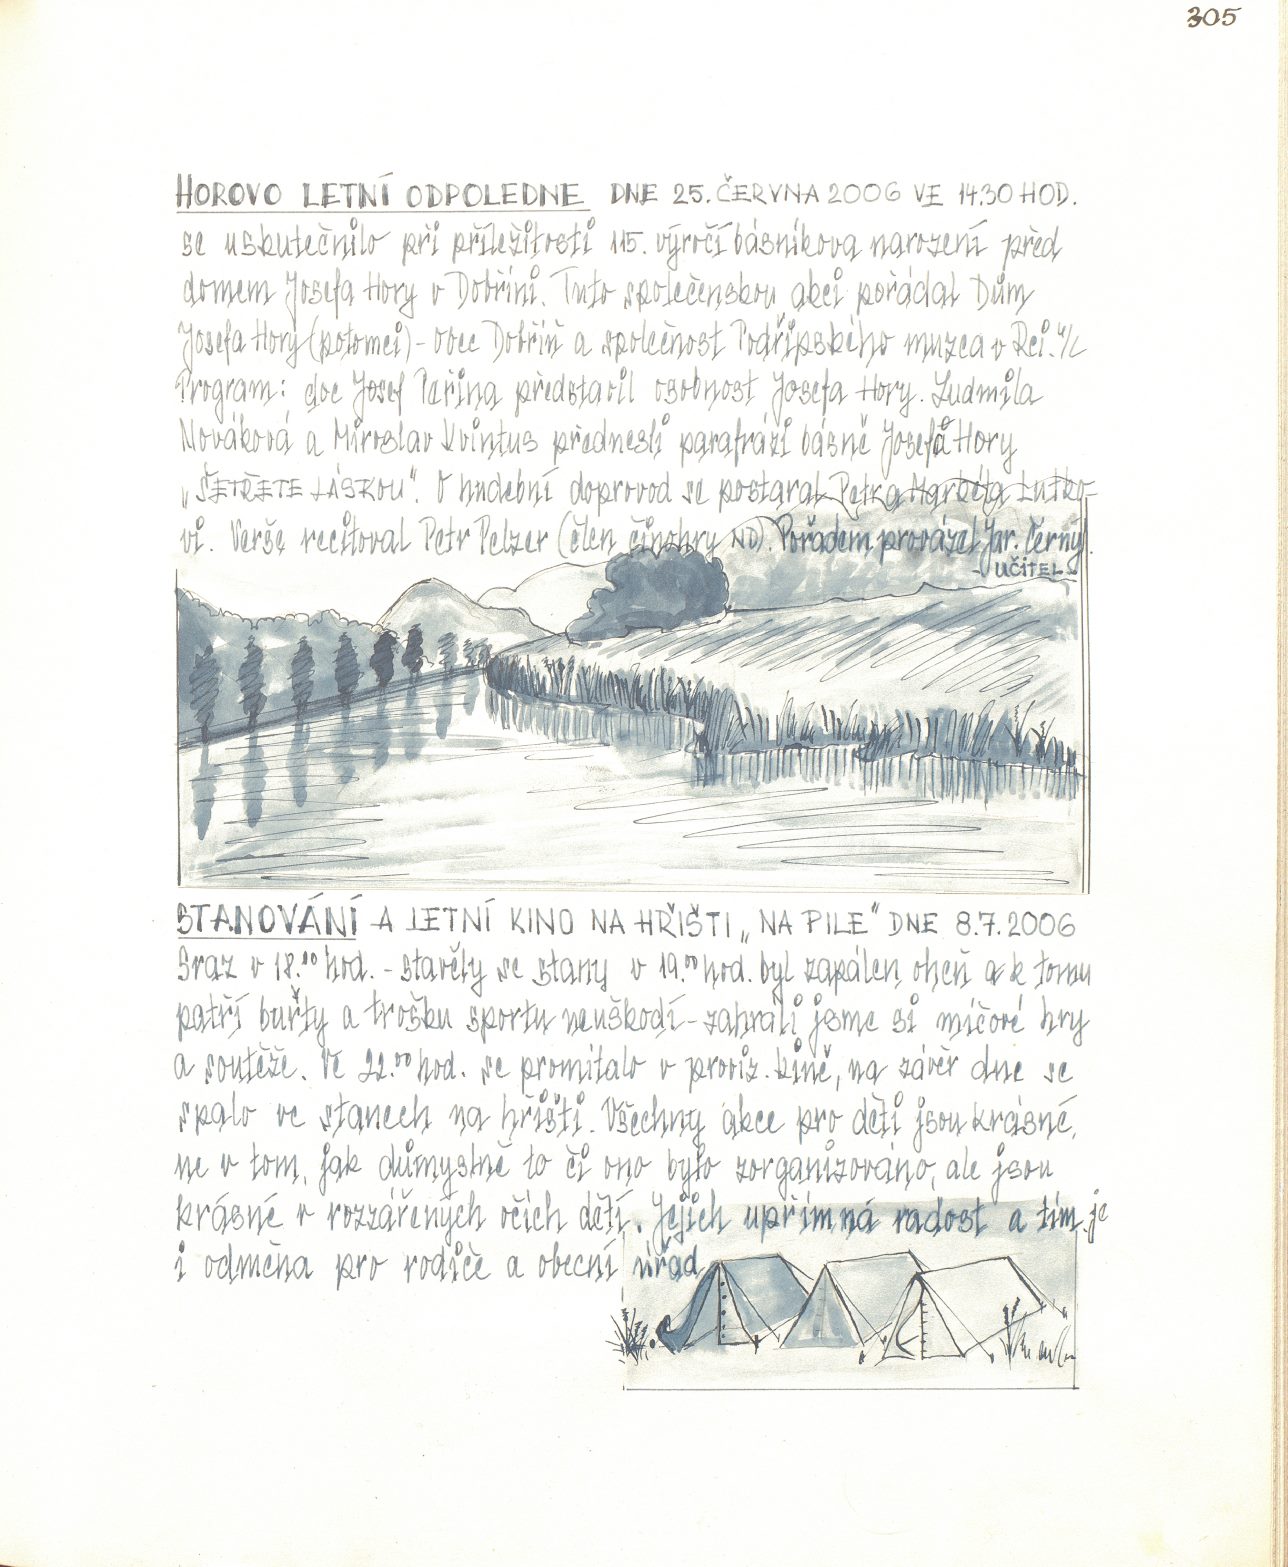 305
HOROVO LETNÍ ODPOLEDNE DNE 25. ČERVNA 2006 VE 14.30 HOD.
se uskutečnilo při příležitosti 115. výročí básníkova narození před
domem Josefa Hory v Dobříni. Tuto společenskou akci pořádal Dům
Josefa Hory (potomci) - obec Dobříň a společnost Podřipského muzea v Rci. n/L
Program: doc Josef Peřina představil osobnost Josefa Hory. Ludmila
Nováková a Miroslav Kvintus přednesli parafrázi básně Josefa Hory
„ŠETŘETE LÁSKOU“. O hudební doprovod se postaral Petr a Markéta Lutko-
vi. Verše recitoval Petr Pelzer (člen činohry ND). Pořadem provázel Jar. Černý.
- UČITEL -
STANOVÁNÍ A LETNÍ KINO NA HŘIŠTI „NA PILE“ DNE 8.7.2006
Sraz v 18.00 hod. - stavěly se stany v 19.00 hod. byl zapálen oheň a k tomu
patří buřty a trošku sportu neuškodí - zahráli jsme si míčové hry
a soutěže. Ve 22.00 hod. se promítalo v proviz. kině, na závěr dne se
spalo ve stanech na hřišti. Všechny akce pro děti jsou krásné,
ne v tom, jak důmyslně to či ono bylo zorganizováno, ale jsou
krásné v rozzářených očích dětí. Jejich upřímná radost a tím je
i odměna pro rodiče a obecní úřad